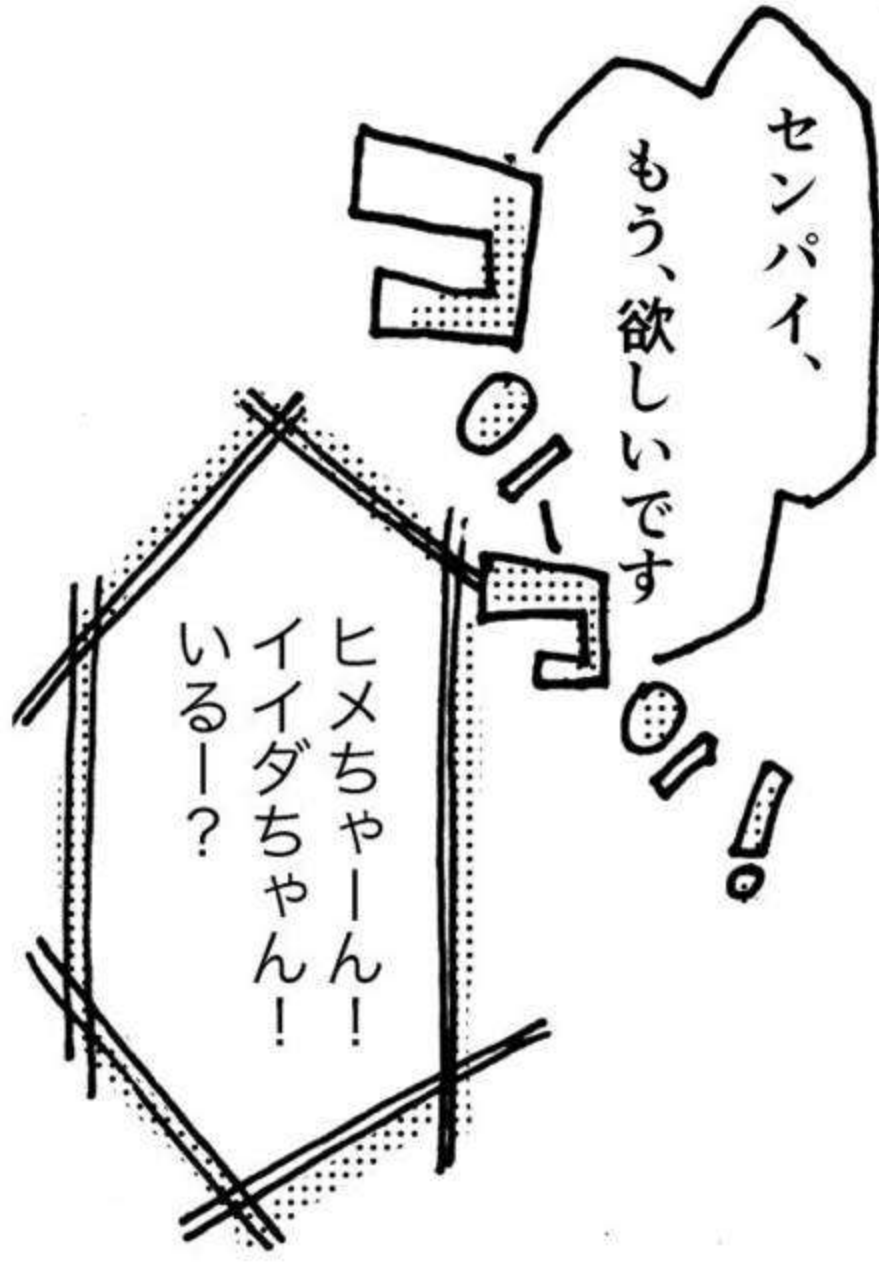 センパイ、
もう、欲しいです
コン
コン!
ヒメちゃーん!
イイダちゃん!
いるー?